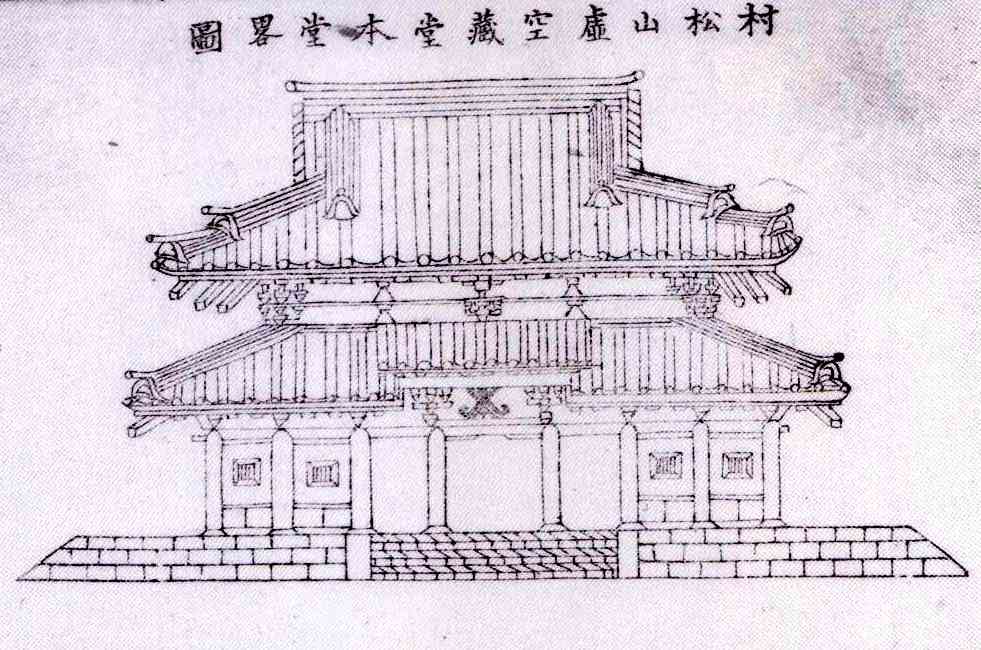 村松山虛空藏堂本堂畧圖